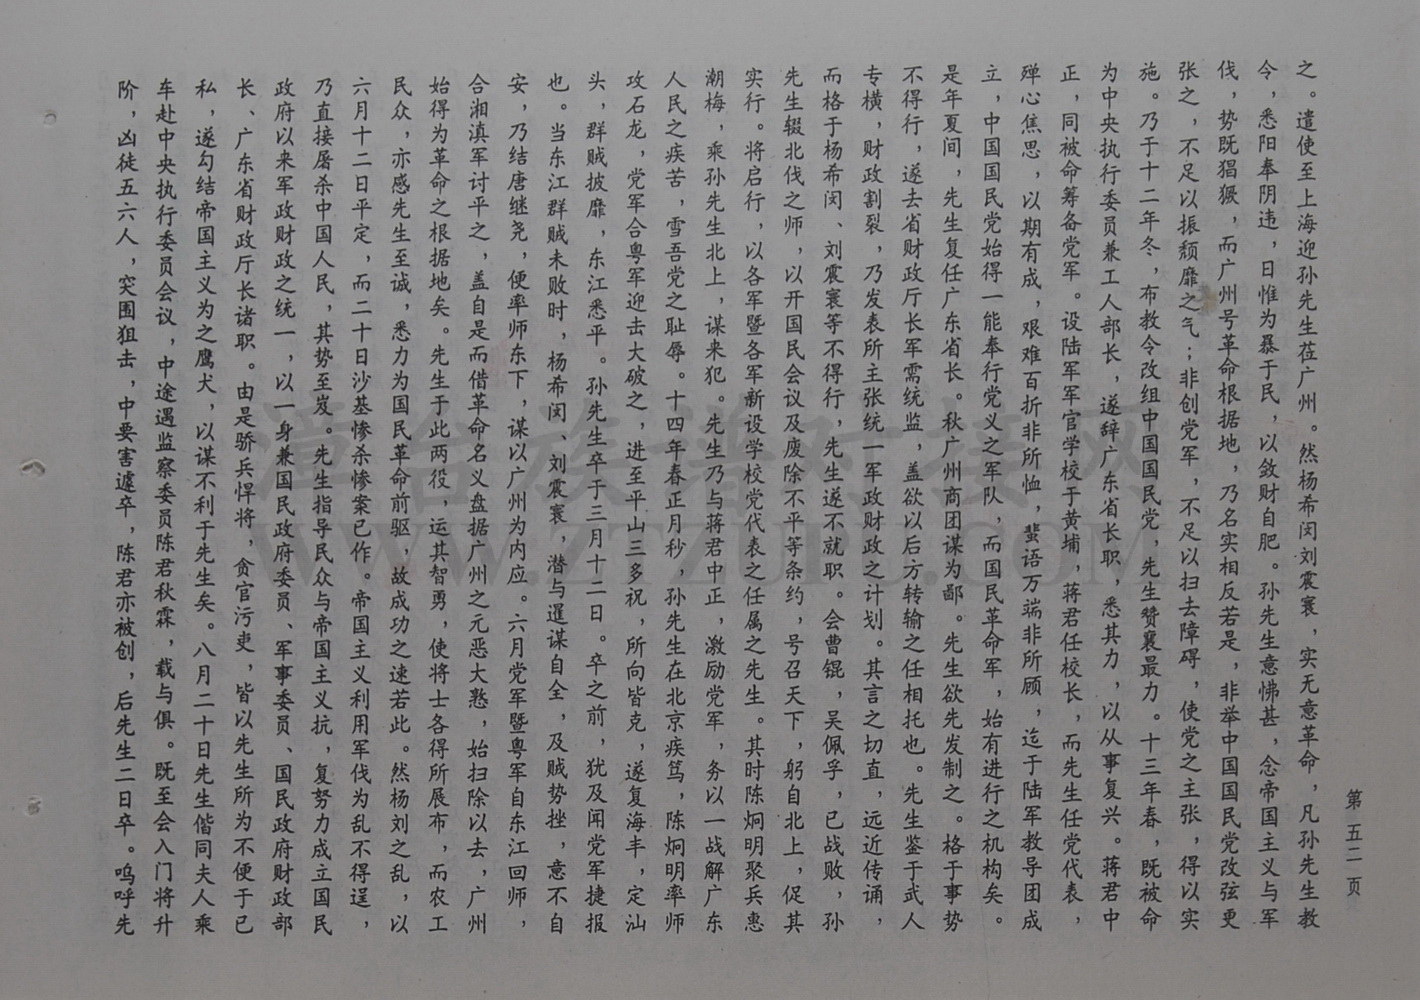 之。遣使至上海迎孙先生莅广州。然杨希闵刘震寰，实无意革命，凡孙先生教
令，悉阳奉阴违，日惟为暴于民，以敛财自肥。孙先生意怫甚，念帝国主义与军
伐，势既猖獗，而广州号革命根据地，乃名实相反若是，非举中国国民党改弦更
张之，不足以振颓靡之气；非创党军，不足以扫去障碍，使党之主张，得以实
施。乃于十二年冬，布教令改组中国国民党，先生赞襄最力。十三年春，既被命
为中央执行委员兼工人部长，遂辞广东省长职，悉其力，以从事复兴。蒋君中
正，同被命筹备党军。设陆军军官学校于黄埔，蒋君任校长，而先生任党代表，
殚心焦思，以期有成，艰难百折非所恤，蜚语万端非所顾，迄于陆军教导团成
立，中国国民党始得一能奉行党义之军队，而国民革命军，始有进行之机构矣。
是年夏间，先生复任广东省长。秋广州商团谋为鄙。先生欲先发制之。格于事势
不得行，遂去省财政厅长军需统监，盖欲以后方转输之任相托也。先生鉴于武人
专横，财政割裂，乃发表所主张统一军政财政之计划。其言之切直，远近传诵，
而格于杨希闵、刘震寰等不得行，先生遂不就职。会曹锟，吴佩孚，已战败，孙
先生辍北伐之师，以开国民会议及废除不平等条约，号召天下，躬自北上，促其
实行。将启行，以各军暨各军新设学校党代表之任属之先生。其时陈炯明聚兵惠
潮梅，乘孙先生北上，谋来犯。先生乃与蒋君中正，激励党军，务以一战解广东
人民之疾苦，雪吾党之耻辱。十四年春正月杪，孙先生在北京疾笃，陈炯明率师
攻石龙，党军合粤军迎击大破之，进至平山三多祝，所向皆克，遂复海丰，定汕
头，群贼披靡，东江悉平。孙先生卒于三月十二日。卒之前，犹及闻党军捷报
也。当东江群贼未败时，杨希闵、刘震寰，潜与暹谋自全，及贼势挫，意不自
安，乃结唐继尧，便率师东下，谋以广州为内应。六月党军暨粤军自东江回师，
合湘滇军讨平之，盖自是而借革命名义盘据广州之元恶大憝，始扫除以去，广州
始得为革命之根据地矣。先生于此两役，运其智勇，使将士各得所展布，而农工
民众，亦感先生至诚，悉力为国民革命前驱，故成功之速若此。然杨刘之乱，以
六月十二日平定，而二十日沙基惨杀惨案已作。帝国主义利用军伐为乱不得逞，
乃直接屠杀中国人民，其势至岌。先生指导民众与帝国主义抗，复努力成立国民
政府以来军政财政之统一，以一身兼国民政府委员、军事委员、国民政府财政部
长、广东省财政厅长诸职。由是骄兵悍将，贪官污吏，皆以先生所为不便于已
私，遂勾结帝国主义为之鹰犬，以谋不利于先生矣。八月二十日先生偕同夫人乘
车赴中央执行委员会议，中途遇监察委员陈君秋霖，载与俱。既至会入门将升
阶，凶徒五六人，突围狙击，中要害遽卒，陈君亦被创，后先生二日卒。呜呼先
第五二页
漳台族谱对接网
WWW.ZTZUPU.COM